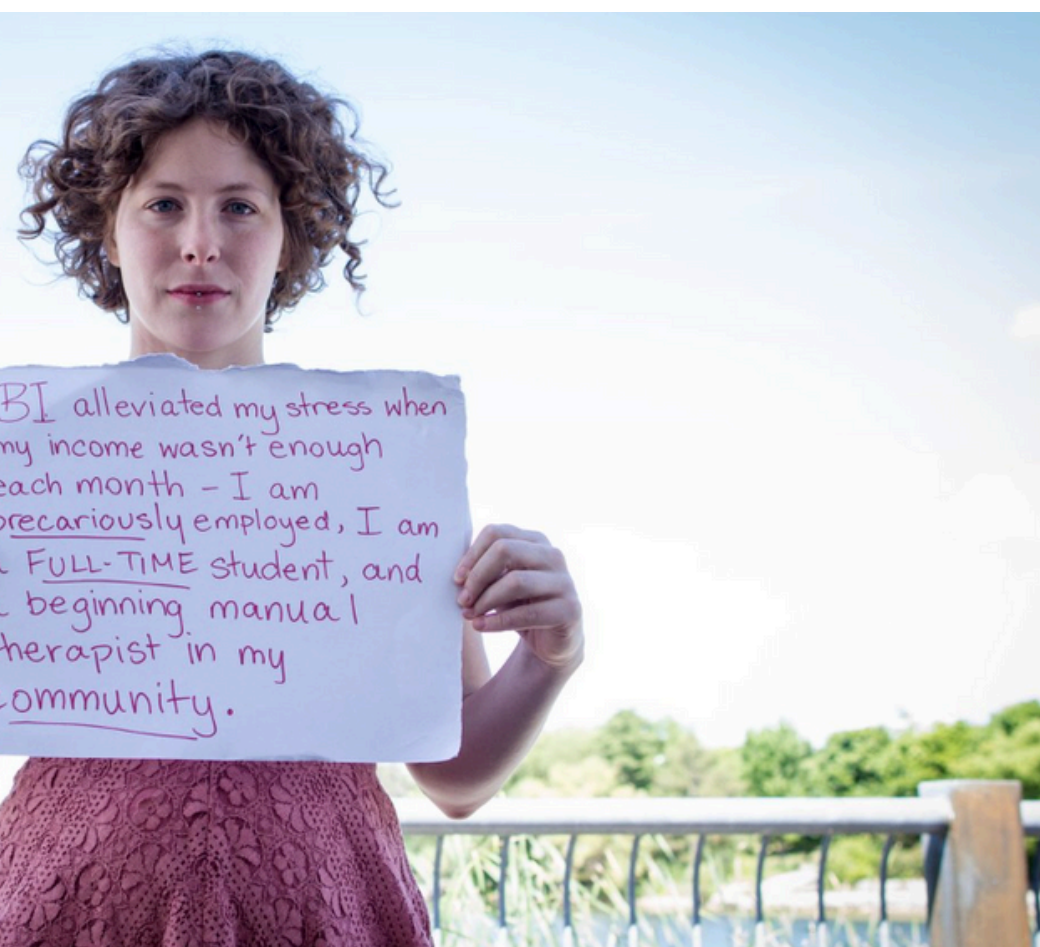 BI alleviated my stress when
my income wasn't enough
each month – I am
precariously employed, I am
a FULL-TIME student, and
a beginning manual
therapist in my
community.